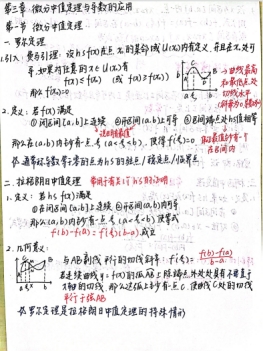 第三章 微分中值定理与导数的应用
第一节 微分中值定理
一. 罗尔定理
1.引入: 费马引理: 设hs f(x)在点x₀的某邻域U(x₀)内有定义, 并且在x₀处可
导, 如果对任意的x∈U(x₀)有
f(x)≤f(x₀) (或 f(x)≥f(x₀))
那么f'(x₀)=0
→曲线最高
和最低点处
切线水平
2.定义: 若f(x)满足
①闭区间[a,b]上连续 ②开区间(a,b)上可导 ③区间端点处hs值相等
那么在(a,b)内至少有一点ξ(a<ξ<b), 使得f'(ξ)=0
在区间内
通常称导数等于零的点为hs的驻点/稳定点/临界点
二. 拉格朗日中值定理 常用于有关hs的证明
1.定义: 若hs f(x)满足
①在闭区间[a,b]上连续 ②开区间(a,b)内可导
那么(a,b)内至少有一点ξ(a<ξ<b), 使等式
f(b)-f(a)=f'(ξ)(b-a)成立
2.几何意义:
与AB割线平行的切线斜率 f'(ξ)=f(b)-f(a)/b-a
若连续曲线y=f(x)的弧AB上除端点外处处具有不垂直于
x轴的切线, 那么这弧上至少有一点C, 使曲线C处的切线
平行于弦AB
罗尔定理是拉格朗日中值定理的特殊情形